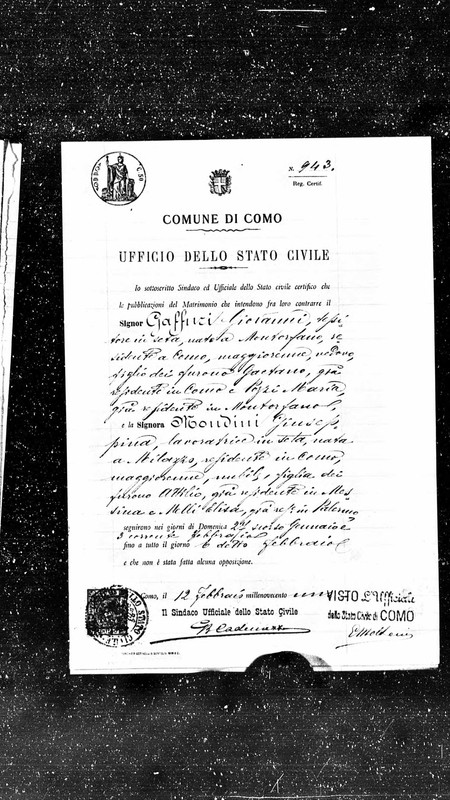 C. 50
N. 943.
Reg. Certif.
COMUNE DI COMO
UFFICIO DELLO STATO CIVILE
Io sottoscritto Sindaco ed Ufficiale dello Stato civile certifico che
le pubblicazioni del Matrimonio che intendono fra loro contrarre il
Signor Gaffuri Giovanni, tessi
tore in seta, nato a Montorfano, re
sidente a Como, maggiorenne, vedovo
figlio dei furono Gaetano, già
residente in Como e Pozzi Maria,
già residente in Montorfano,
e la Signora Mondini Giusep
pina, lavoratrice in seta, nata
a Milazzo, residente in Como,
maggiorenne, nubile, figlia dei
furono Attilio, già residente in Mes
sina e Melli Elisa, già res. in Palermo
seguirono nei giorni di Domenica scorso Gennaio e
3 corrente Febbraio
fino a tutto il giorno 6 detto Febbraio
e che non è stata fatta alcuna opposizione.
Como, il 12 Febbraio millenovecento
VISTO L'Ufficiale
Il Sindaco Ufficiale dello Stato Civile
dello Stato Civile di COMO